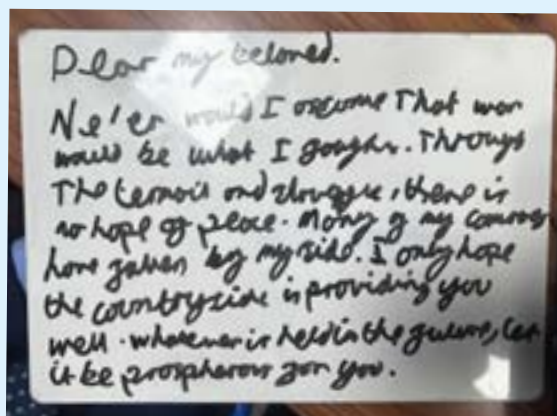 Dear my beloved.
Ne'er would I assume That war
would be what I fought. Through
The termoil and struggle, there is
no hope of peace. Many of my comrades
have fallen by my side. I only hope
the countryside is providing you
well. whatever is held in the future, let
it be prosperous for you.